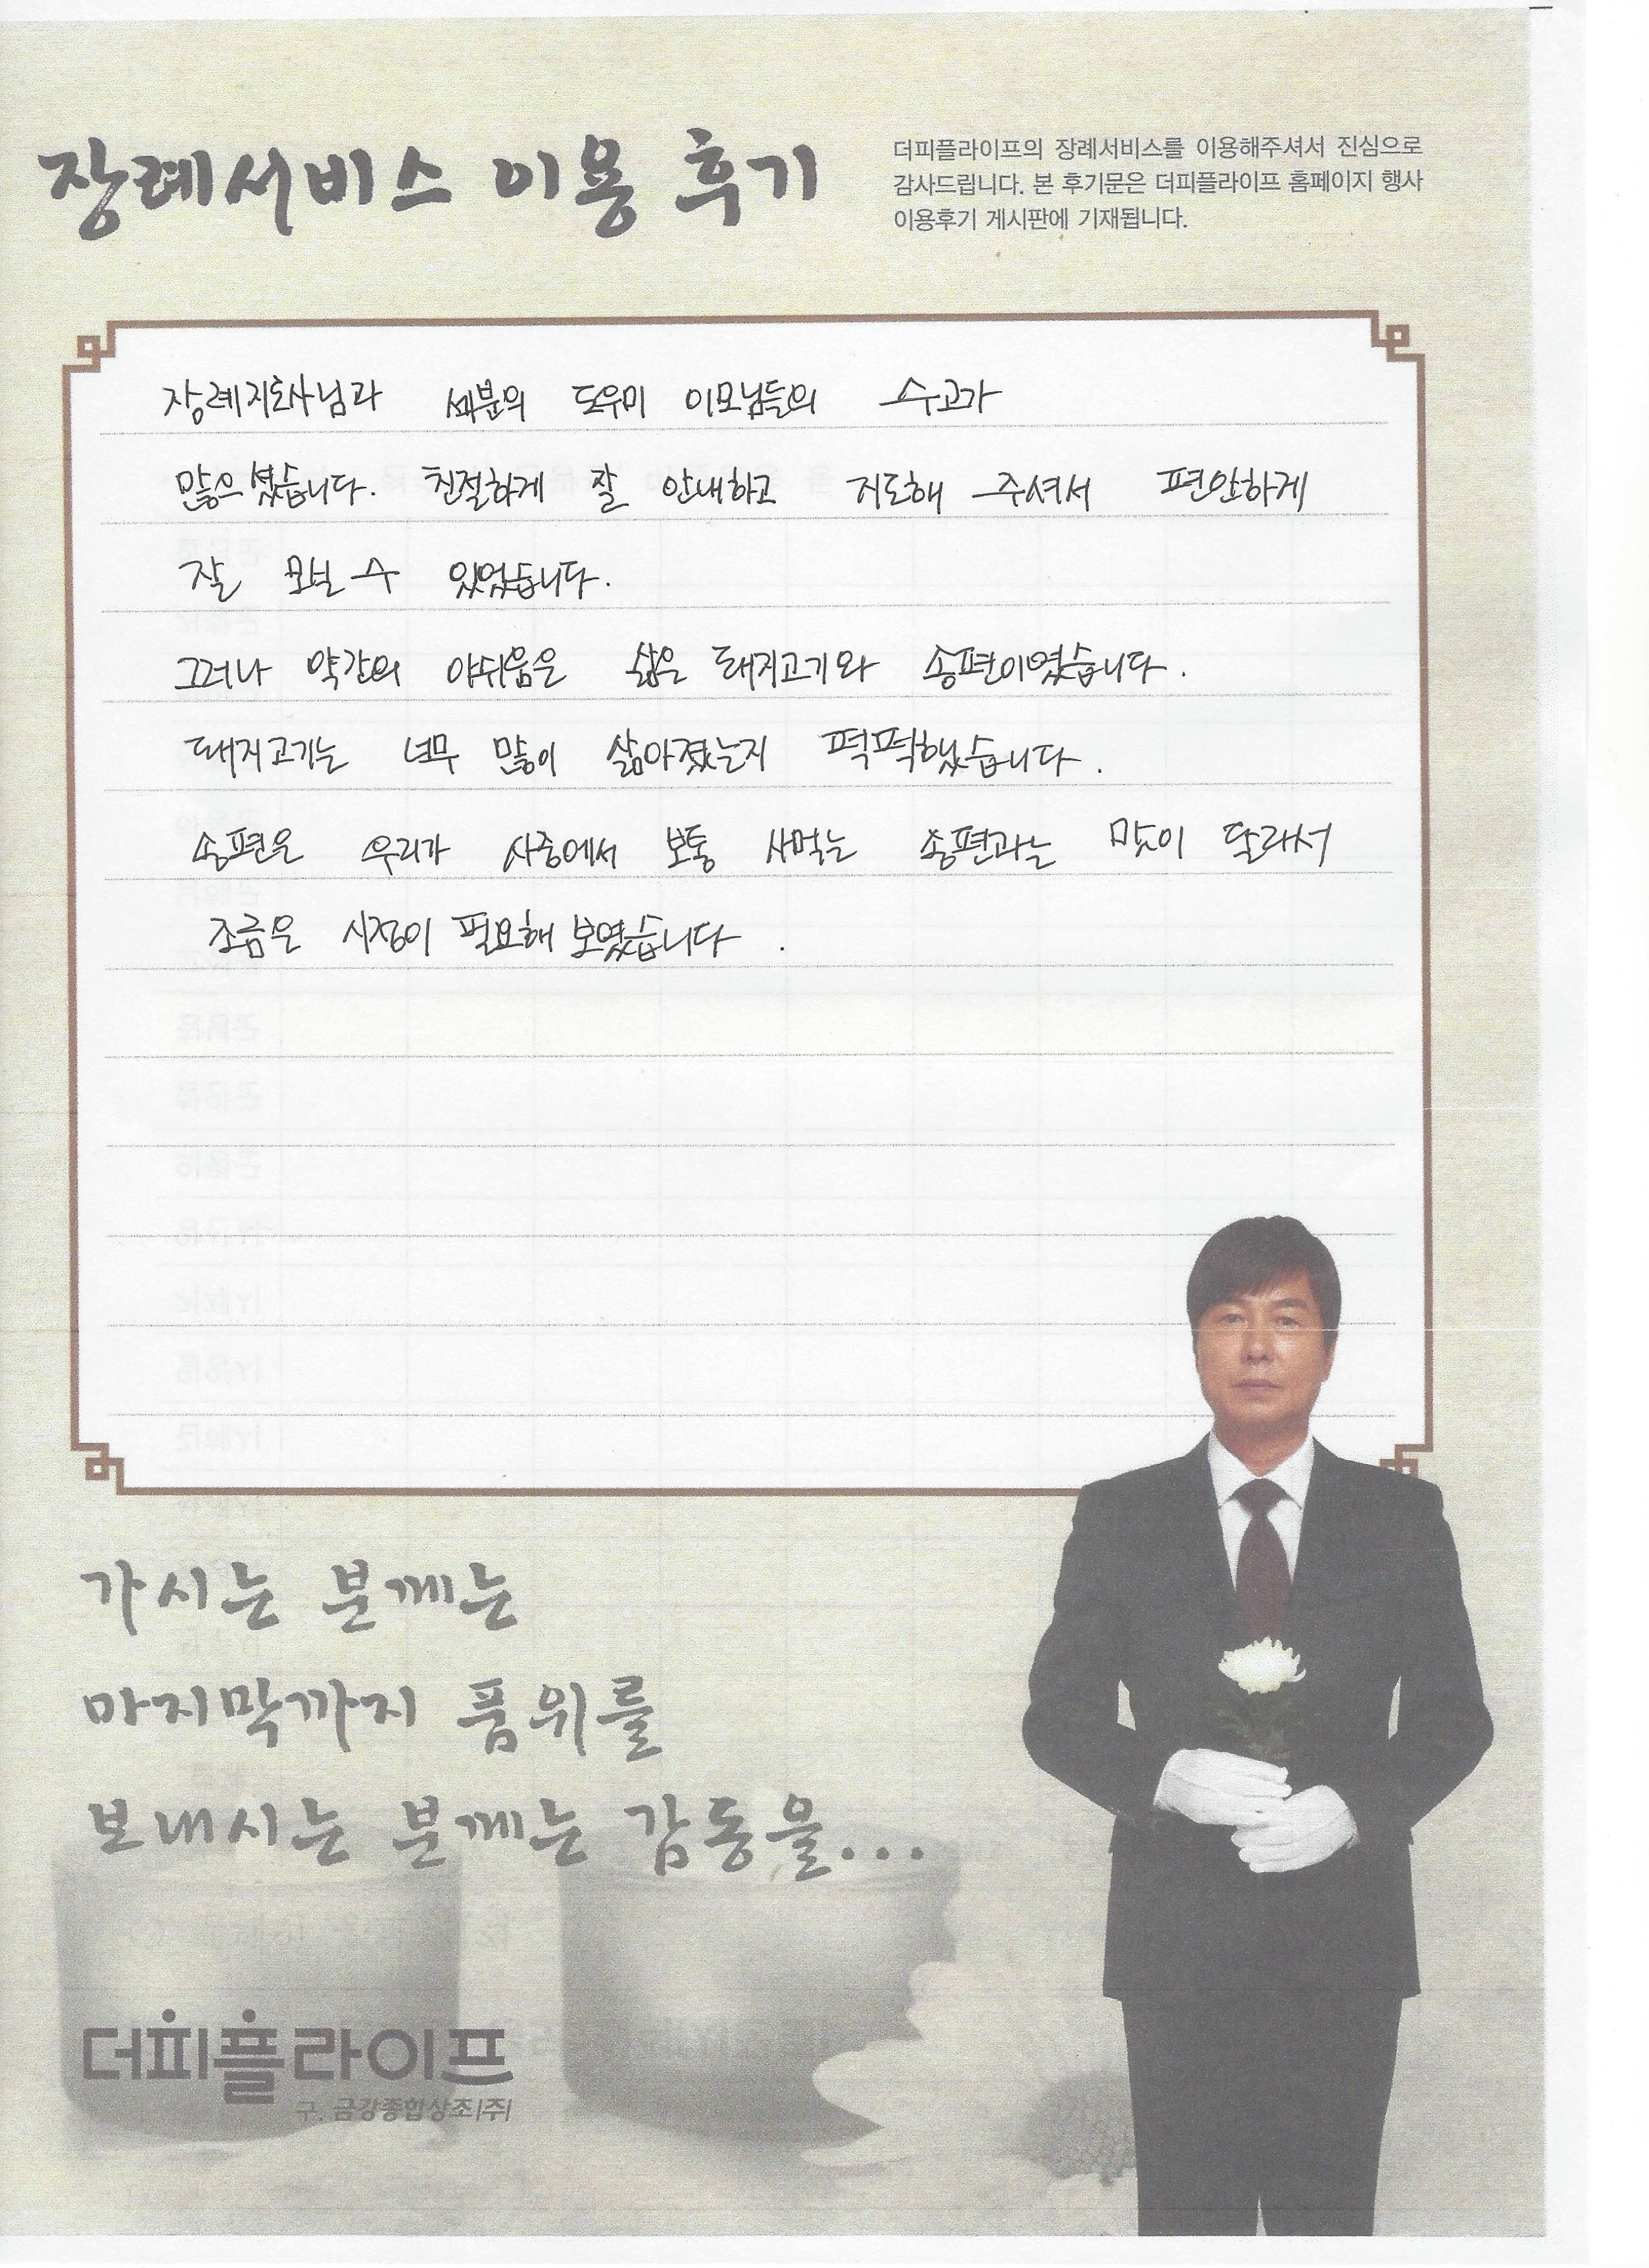 장례서비스 이용 후기
더피플라이프의 장례서비스를 이용해주셔서 진심으로
감사드립니다. 본 후기문은 더피플라이프 홈페이지 행사
이용후기 게시판에 기재됩니다.
장례지도사님과 세분의 도우미 이모님들의 수고가
많으셨습니다. 친절하게 잘 안내하고 지도해 주셔서 편안하게
잘 모실 수 있었습니다.
그러나 약간의 아쉬움은 삶은 돼지고기와 송편이였습니다.
돼지고기는 너무 많이 삶아졌는지 퍽퍽했습니다.
송편은 우리가 시중에서 보통 사먹는 송편과는 맛이 달라서
조금은 시정이 필요해 보였습니다.
가시는 분께는
마지막까지 품위를
보내시는 분께는 감동을...
더피플라이프
구. 금강종합상조(주)